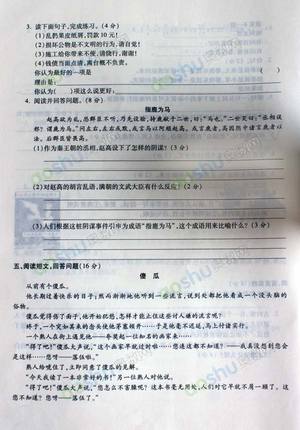 3. 读下面句子,完成练习。(4 分)
(1)乱扔果皮纸屑,罚款10元!
(2)损坏公物是不文明的行为,请自觉!
(3)施工给你带来不便,请绕行,谢谢!
(4)钱债当面点清,离台概不负责。
你认为最好的一项是
理由是:
你认为( )项这么说更好:
4. 阅读并回答问题。(8分)
指鹿为马
赵高欲为乱,恐群臣不听,乃先设验,持鹿献于二世,曰:“马也。”二世笑曰:“丞相误
邪?谓鹿为马。”问左右,左右或默,或言马以阿顺赵高,或言鹿者,高因阴中诸言鹿者以
法。后群臣皆畏高。
(1)作为秦王朝的丞相,赵高设下了怎样的阴谋?(3分)
(2)对赵高的胡言乱语,满朝的文武大臣有什么反应?(2分)
(3)人们根据这桩阴谋事件引申为成语“指鹿为马”,这个成语用来比喻什么?(3分)
五、阅读短文,回答问题(16分)
傻 瓜
从前有个傻瓜。
他长期过着快乐的日子;然而渐渐地他听到一些流言,说到处都把他看成一个没头脑的
俗物。
傻瓜觉得伤了面子,他开始犯愁,怎样才能止住这些讨人嫌的流言呢?
终于,一个突如其来的念头使他茅塞顿开……于是他毫不迟延,马上付诸实行。
一个熟人在街上遇见他——夸奖起一位著名的画家来……
“得了吧!”傻瓜大声说,“这个画家早就过时啦……您连这都不知道?——我真没想到会
是这样……您呀——落伍啦。”
熟人给唬住了,立即同意了傻瓜的见解。
“今天我读了一本非常好的书!”另一位熟人对他说。
“得了吧!”傻瓜大声说,“您怎么不害臊呢?这本书毫无用处,人们对它早就不屑一顾了。这
您不知道?您呀——落伍啦。”